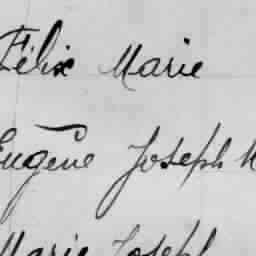 Félix Marie
Eugène Joseph
Marie Joseph